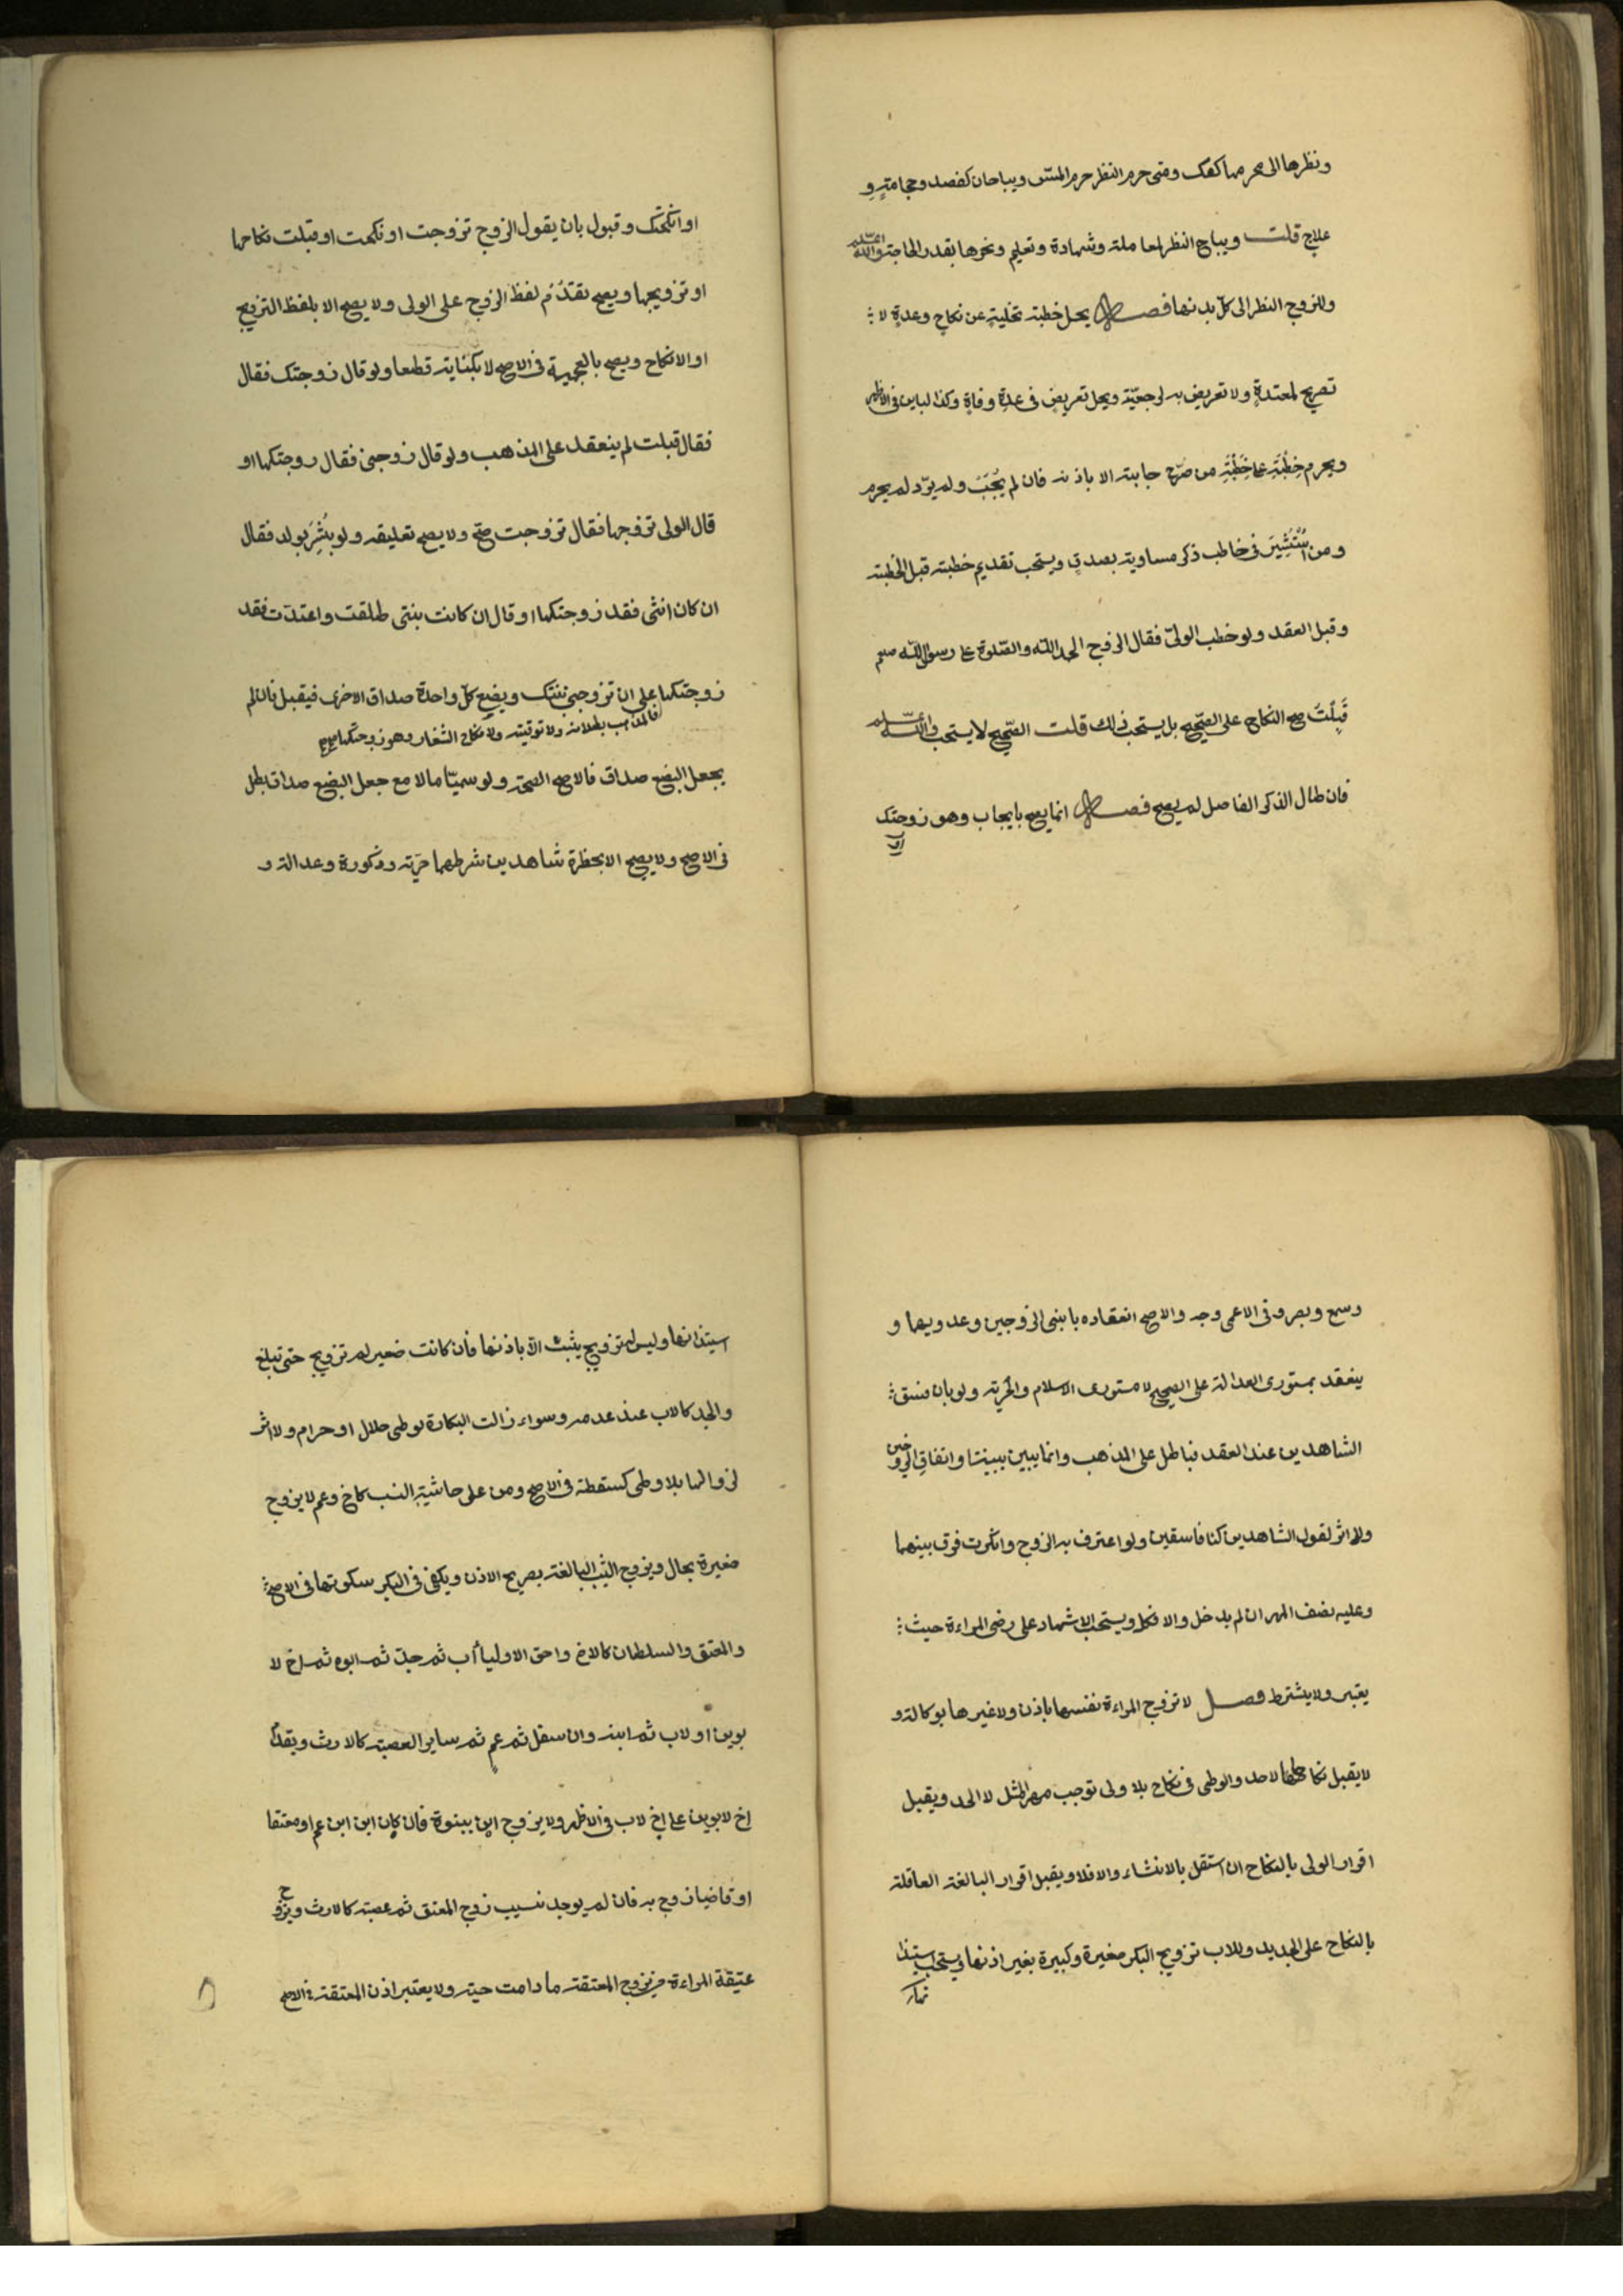 ونظرها الى محرمها كعكسه ومتى حرم النظر حرم المسّ ويباحان لفصد وحجامةٍ و
علاج قلت ويباح النظر لمعاملة وشهادة وتعليم ونحوها بقدر الحاجة والله اعلم
وللزوج النظر الى كلّ بدنها فصل يحل خطبة خليةٍ عن نكاحٍ وعدةٍ لا
تصريح لمعتدةٍ ولا تعريض به لرجعيّة ويحل تعريض فى عدة وفاةٍ وكذا لباين فى الاظهر
ويحرم خِطْبَة على خِطْبَةِ من صُرّح جابته الا باذنه فان لم يُجَبْ ولم يردّ لم يحرم
ومن اُسْتُشِيرَ فى خاطب ذكر مساويه بصدقٍ ويستحب تقديم خطبة قبل الخُطبة
وقبل العقد ولو خطب الولىّ فقال الزوج الحمد الله والصّلوة على رسول الله صلعم
قَبِلْتُ صح النكاح على الصّحيح بل يستحب ذلك قلت الصّحيح لا يستحب والله اعلم
فان طال الذكر الفاصل لم يصح فصل انما يصح بايجاب وهو زوجتك
او
او انكحتك وقبول بان يقول الزوج تزوجت او نكحت او قبلت نكاحها
او تزويجها ويصح تقدّم لفظ الزوج على الولى ولا يصح الا بلفظ التزويج
او الانكاح ويصح بالعجمية فى الاصح لا بكناية قطعا ولو قال زوجتك فقال
فقال قبلت لم ينعقد على المذهب ولو قال زوجنى فقال زوجتكها او
قال الولى تزوجها فقال تزوجت صحّ ولا يصح تعليقه ولو بُشِّرَ بولد فقال
ان كان انثى فقد زوجتكها او قال ان كانت بنتى طلقت واعتدت فقد
زوجتكها على ان تزوجنى بنتك وبضع كلّ واحدة صداق الاخرى فيقبل فان لم
فالمذهب بطلانه ولا توقيته ولا نكاح الشغار وهو زوجتكها صح
يجعل البضع صداق فالاصح الصحة ولو سميّا مالا مع جعل البضع صداق بطل
فى الاصح ولا يصح الا بحظرة شاهدين شرطهما حرّية وذكورة وعدالة و
وسمع وبصر وفى الاعمى وجه والاصح انعقاده بابنى الزوجين وعدويهما و
ينعقد بمستورى العدالة على الصحيح لا مستورى الاسلام والحرّية ولو بان فسق
الشاهدين عند العقد فباطل على المذهب وانما يبين ببينة او اتفاق الزوجين
ولا اثر لقول الشاهدين كنا فاسقين ولو اعترف به الزوج وانكرت فرق بينهما
وعليه نصف المهر ان لم يدخل والا فكله ويستحب الاشهاد على رضى المراءة حيث
يعتبر ولا يشترط فصل لا تزوج المراءة نفسها باذن ولا غيرها بوكالة و
لا يقبل نكاحها لاحد والوطى فى نكاح بلا ولى توجب مهر المثل لا الحد ويقبل
اقرار الولى بالنكاح ان استقل بالانشاء والا فلا ويقبل اقرار البالغة العاقلة
بالنكاح على الجديد وللاب تزويج البكر صغيرة وكبيرة بغير اذنها ويستحب ستيذا
استيذانها وليس له تزويج يثبت الّا باذنها فان كانت صغير لم تزويج حتى تبلغ
والجد كالاب عند عدمه وسواء زالت البكارة بوطى حلال او حرام ولا اثر
لزوالها بلا وطى كسقطة فى الاصح ومن على حاشية النسب كاخ وعم لا يزوج
صغيرة بحال ويزوج الثيّب البالغة بصريح الاذن ويكفى فى البكر سكوتها فى الاصح
والمعتق والسلطان كالاخ واحق الاولياء أب ثم جدّ ثم ابوه ثم اخ لا
بوين او لاب ثم ابنه وان سفل ثم عم ثم ساير العصبة كالارث ويقدّم
اخ لابوين على اخ لاب فى الاظهر ولا يزوج ابن ببنوة فان كان ابن ابن عم او معتقا
او قاضيا زوج به فان لم يوجد نسيب زوج المعتق ثم عصبته كالارث ويزوج
عتيقة المراءة من يزوج المعتقة ما دامت حية ولا يعتبر اذن المعتقة فى الاصح